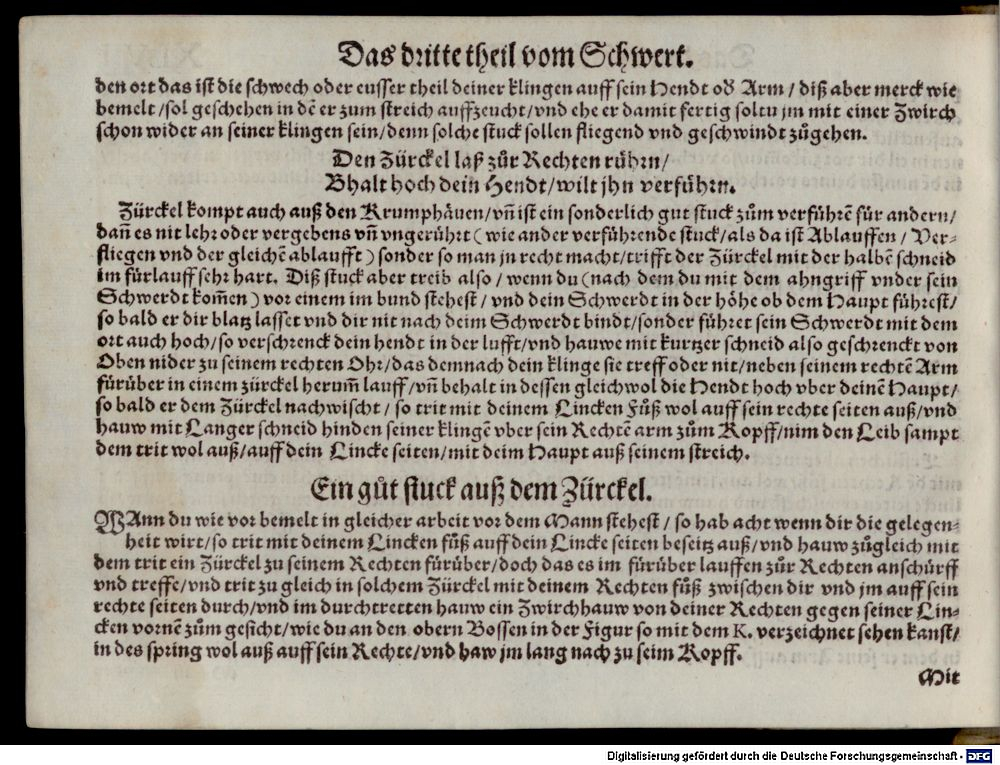 Das dritte theil vom Schwert.
den ort das ist die schwech oder eusser theil deiner klingen auff sein Hendt od̄ Arm / diß aber merck wie
bemelt / sol geschehen in dē er zum streich auffzeucht / vnd ehe er damit fertig soltu jm mit einer Zwirch
schon wider an seiner klingen sein / denn solche stuck sollen fliegend vnd geschwindt zůgehen.
Den Zürckel laß zůr Rechten rührn /
Bhalt hoch dein Hendt / wilt jhn verführn.
Zürckel kompt auch auß den Krumphäuen / vn̄ ist ein sonderlich gut stuck zům verführē für andern /
dan̄ es nit lehr oder vergebens vn̄ vngerührt ( wie ander verführende stuck / als da ist Ablauffen / Ver⸗
fliegen vnd der gleichē ablaufft ) sonder so man jn recht macht / trifft der Zürckel mit der halbē schneid
im fürlauff sehr hart. Diß stuck aber treib also / wenn du ( nach dem du mit dem ahngriff vnder sein
Schwerdt kom̄en ) vor einem im bund stehest / vnd dein Schwerdt in der höhe ob dem Haupt führest /
so bald er dir blatz lasset vnd dir nit nach deim Schwerdt bindt / sonder führet sein Schwerdt mit dem
ort auch hoch / so verschrenck dein hendt in der lufft / vnd hauwe mit kurtzer schneid also geschrenckt von
Oben nider zu seinem rechten Ohr / das demnach dein klinge sie treff oder nit / neben seinem rechtē Arm
fürüber in einem zürckel herum̄ lauff / vn̄ behalt in dessen gleichwol die Hendt hoch vber deinē Haupt /
so bald er dem Zürckel nachwischt / so trit mit deinem Lincken Fůß wol auff sein rechte seiten auß / vnd
hauw mit Langer schneid hinden seiner klingē vber sein Rechtē arm zům Kopff / nim den Leib sampt
dem trit wol auß / auff dein Lincke seiten / mit deim Haupt auß seinem streich.
Ein gůt stuck auß dem Zürckel.
WAnn du wie vor bemelt in gleicher arbeit vor dem Mann stehest / so hab acht wenn dir die gelegen⸗
heit wirt / so trit mit deinem Lincken fůß auff dein Lincke seiten beseitz auß / vnd hauw zůgleich mit
dem trit ein Zürckel zu seinem Rechten fürüber / doch das es im fürüber lauffen zůr Rechten anschürff
vnd treffe / vnd trit zu gleich in solchem Zürckel mit deinem Rechten fůß zwischen dir vnd jm auff sein
rechte seiten durch / vnd im durchtretten hauw ein Zwirchhauw von deiner Rechten gegen seiner Lin⸗
cken vornē zům gesicht / wie du an den obern Bossen in der Figur so mit dem K. verzeichnet sehen kanst /
in des spring wol auß auff sein Rechte / vnd haw jm lang nach zu seim Kopff.
Mit
Digitalisierung gefördert durch die Deutsche Forschungsgemeinschaft - DFG